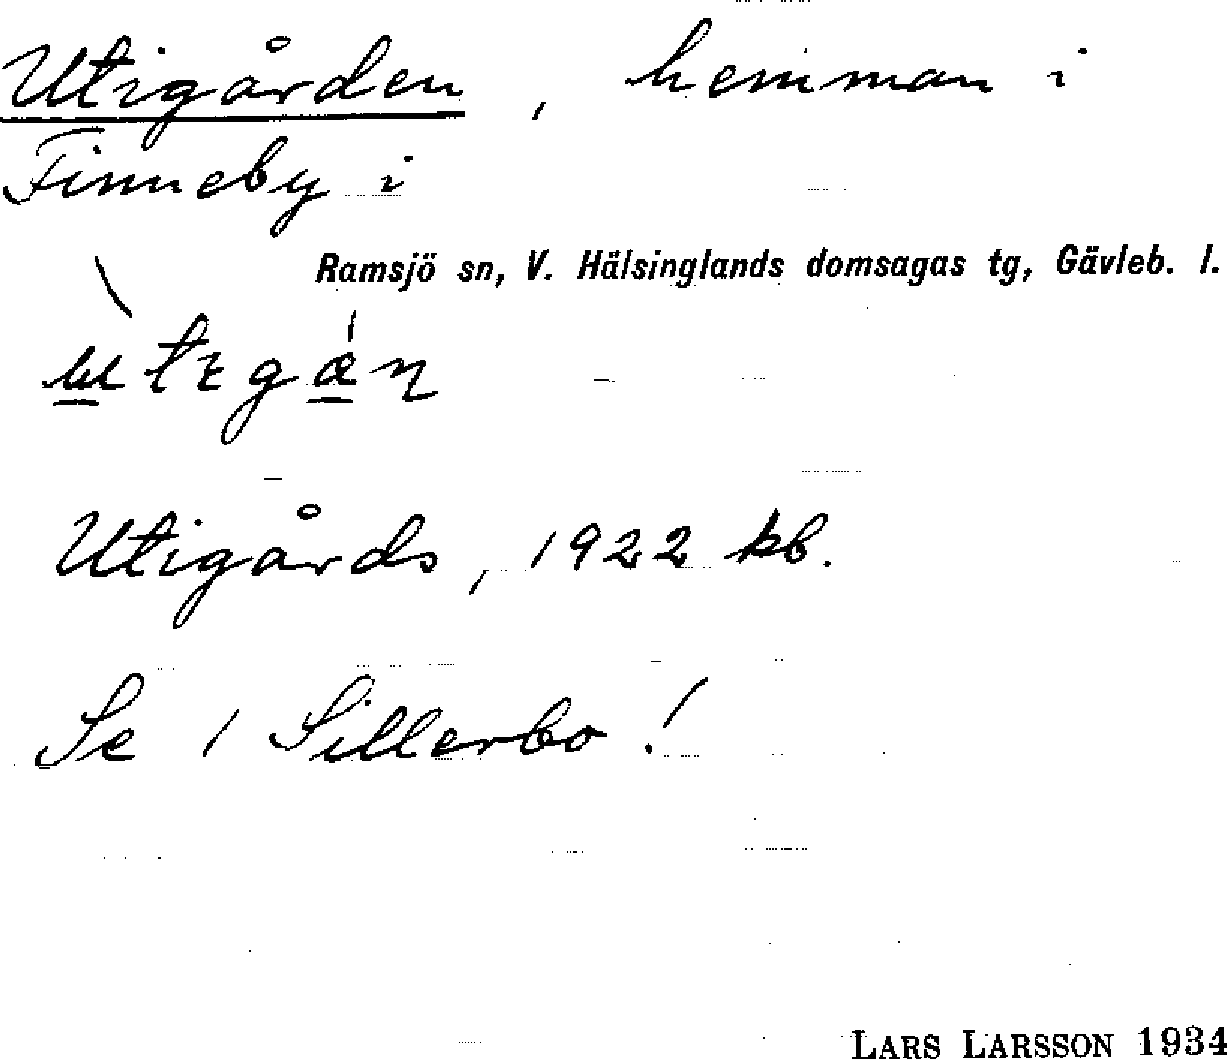 Utigården, hemman i
Finneby i
Ramsjö sn, V. Hälsinglands domsagas tg, Gävleb. l.
Utigårds, 1922 kb.
Se 1 Sillerbo!
LARS LARSSON 1934